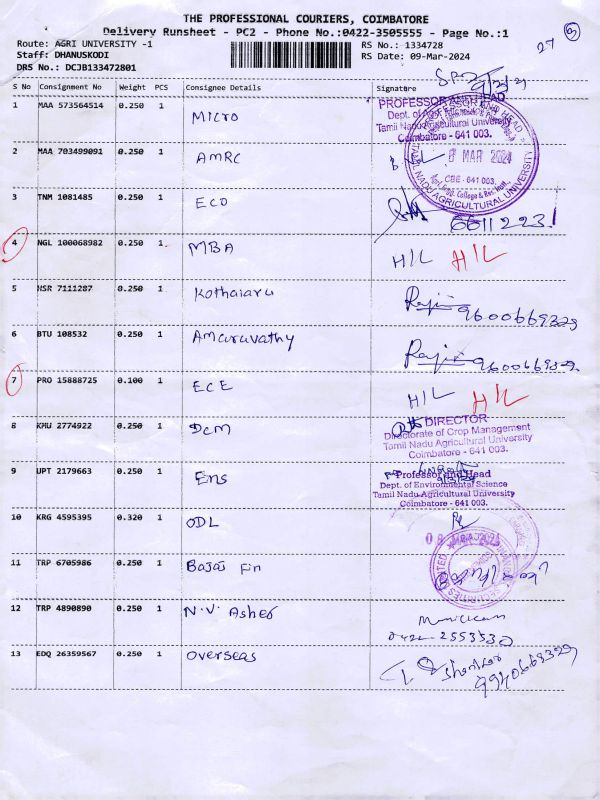 THE PROFESSIONAL COURIERS, COIMBATORE
Delivery Runsheet - PC2 - Phone No.:0422-3505555 - Page No.:1
Route: AGRI UNIVERSITY -1
RS No.: 1334728
27
Staff: DHANUSKODI
RS Date: 09-Mar-2024
DRS No.: DCJB133472801
S No Consignment No Weight PCS Consignee Details Signature
1 MAA 573564514 0.250 1 MICRO
PROFESSOR AND HEAD
Tamil Nadu Agricultural University
Coimbatore - 641 003.
2 MAA 703499091 0.250 1 AMRC
8 MAR 2024
CBE - 641 003.
TAMIL NADU AGRICULTURAL UNIVERSITY
3 TNM 1081485 0.250 1 ECO
6611223
4 NGL 100068982 0.250 1 MBA H/L H/L
5 NSR 7111287 0.250 1 Kothaiaru
9600669329
6 BTU 108532 0.250 1 Amaravathy
7 PRO 15888725 0.100 1 ECE H/L H/L
8 KMU 2774922 0.250 1 DCM
DIRECTOR
Directorate of Crop Management
Tamil Nadu Agricultural University
Coimbatore - 641 003.
9 UPT 2179663 0.250 1 Ens
Professor and Head
Dept. of Environmental Science
Tamil Nadu Agricultural University
Coimbatore - 641 003.
10 KRG 4595395 0.320 1 ODL
11 TRP 6705986 0.250 1 Bajaj Fin
12 TRP 4890890 0.250 1 N.V. Asher
0422-2553530
13 EDQ 26359567 0.250 1 Overseas